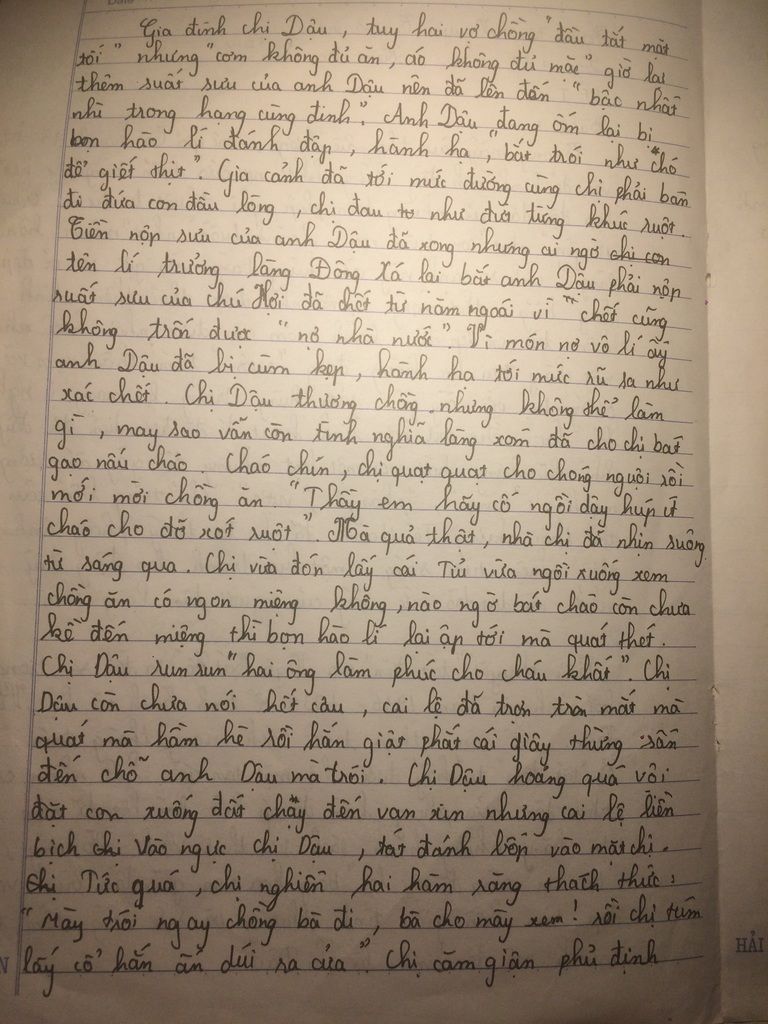 Gia đình chị Dậu, tuy hai vợ chồng "đầu tắt mặt
tối" nhưng "cơm không đủ ăn, áo không đủ mặc" giờ lại
thêm suất sưu của anh Dậu nên đã lên đến "bậc nhất
nhì trong hạng cùng đinh". Anh Dậu đang ốm lại bị
bọn hào lí đánh đập, hành hạ, "bắt trói như chó
để giết thịt". Gia cảnh đã tới mức đường cùng chị phải bán
đi đứa con đầu lòng, chị đau như đứt từng khúc ruột.
Tiền nộp sưu của anh Dậu đã xong nhưng ai ngờ
tên lí trưởng làng Đông Xá lại bắt anh Dậu phải nộp
suất sưu của chú Hợi đã chết từ năm ngoái vì "chết cũng
không trốn được "nợ nhà nước". Vì món nợ vô lí ấy
anh Dậu đã bị cùm kẹp, hành hạ tới mức rũ ra như
xác chết. Chị Dậu thương chồng nhưng không thể làm
gì, may sao vẫn còn tình nghĩa làng xóm đã cho chị bát
gạo nấu cháo. Cháo chín, chị quạt quạt cho chóng nguội rồi
mới mời chồng ăn. "Thầy em hãy cố ngồi dậy húp ít
cháo cho đỡ xót ruột". Mà quả thật, nhà chị đã nhịn suông
từ sáng qua. Chị vừa đón lấy cái Tỉu vừa ngồi xuống xem
chồng ăn có ngon miệng không, nào ngờ bát cháo còn chưa
kề đến miệng thì bọn hào lí lại ập tới mà quát thét.
Chị Dậu run run "hai ông làm phúc cho cháu khất". Chị
Dậu còn chưa nói hết câu, cai lệ đã trợn tròn mắt mà
quát mà hầm hè rồi hắn giật phắt cái giây thừng sấn
đến chỗ anh Dậu mà trói. Chị Dậu hoảng quá vội
đặt con xuống đất chạy đến van xin nhưng cai lệ liền
bịch chị vào ngực chị Dậu, tát đánh bốp vào mặt chị.
Chị Tức quá, chị nghiến hai hàm răng thách thức:
"Mày trói ngay chồng bà đi, bà cho mày xem! rồi chị túm
lấy cổ hắn ấn dúi ra cửa". Chị căm giận phủ định
HẢI